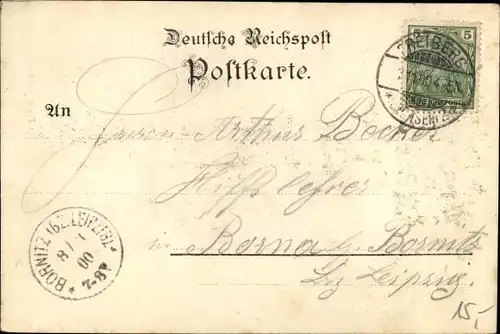 Deutsche Reichspost
Postkarte.
5
FREIBERG
An
Herrn Arthur Becker
Hilfslehrer
BORNITZ (BZ. LEIPZIG)
8/1
00
7-8V
in Borna b. Bornitz
Bz Leipzig.
15,-